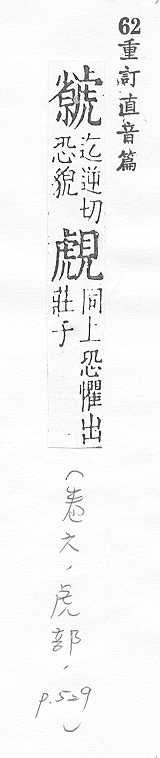 62重訂直音篇
虩
迄逆切
恐貌
覤
同上恐懼出
莊子
(卷六,虎部,p.529)